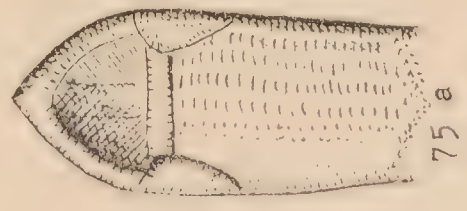 75 a